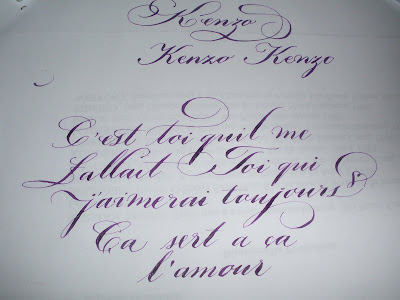 Kenzo
Kenzo Kenzo
C'est toi quil me
fallait Toi qui
j'aimerai toujours
Ça sert a ça
l'amour